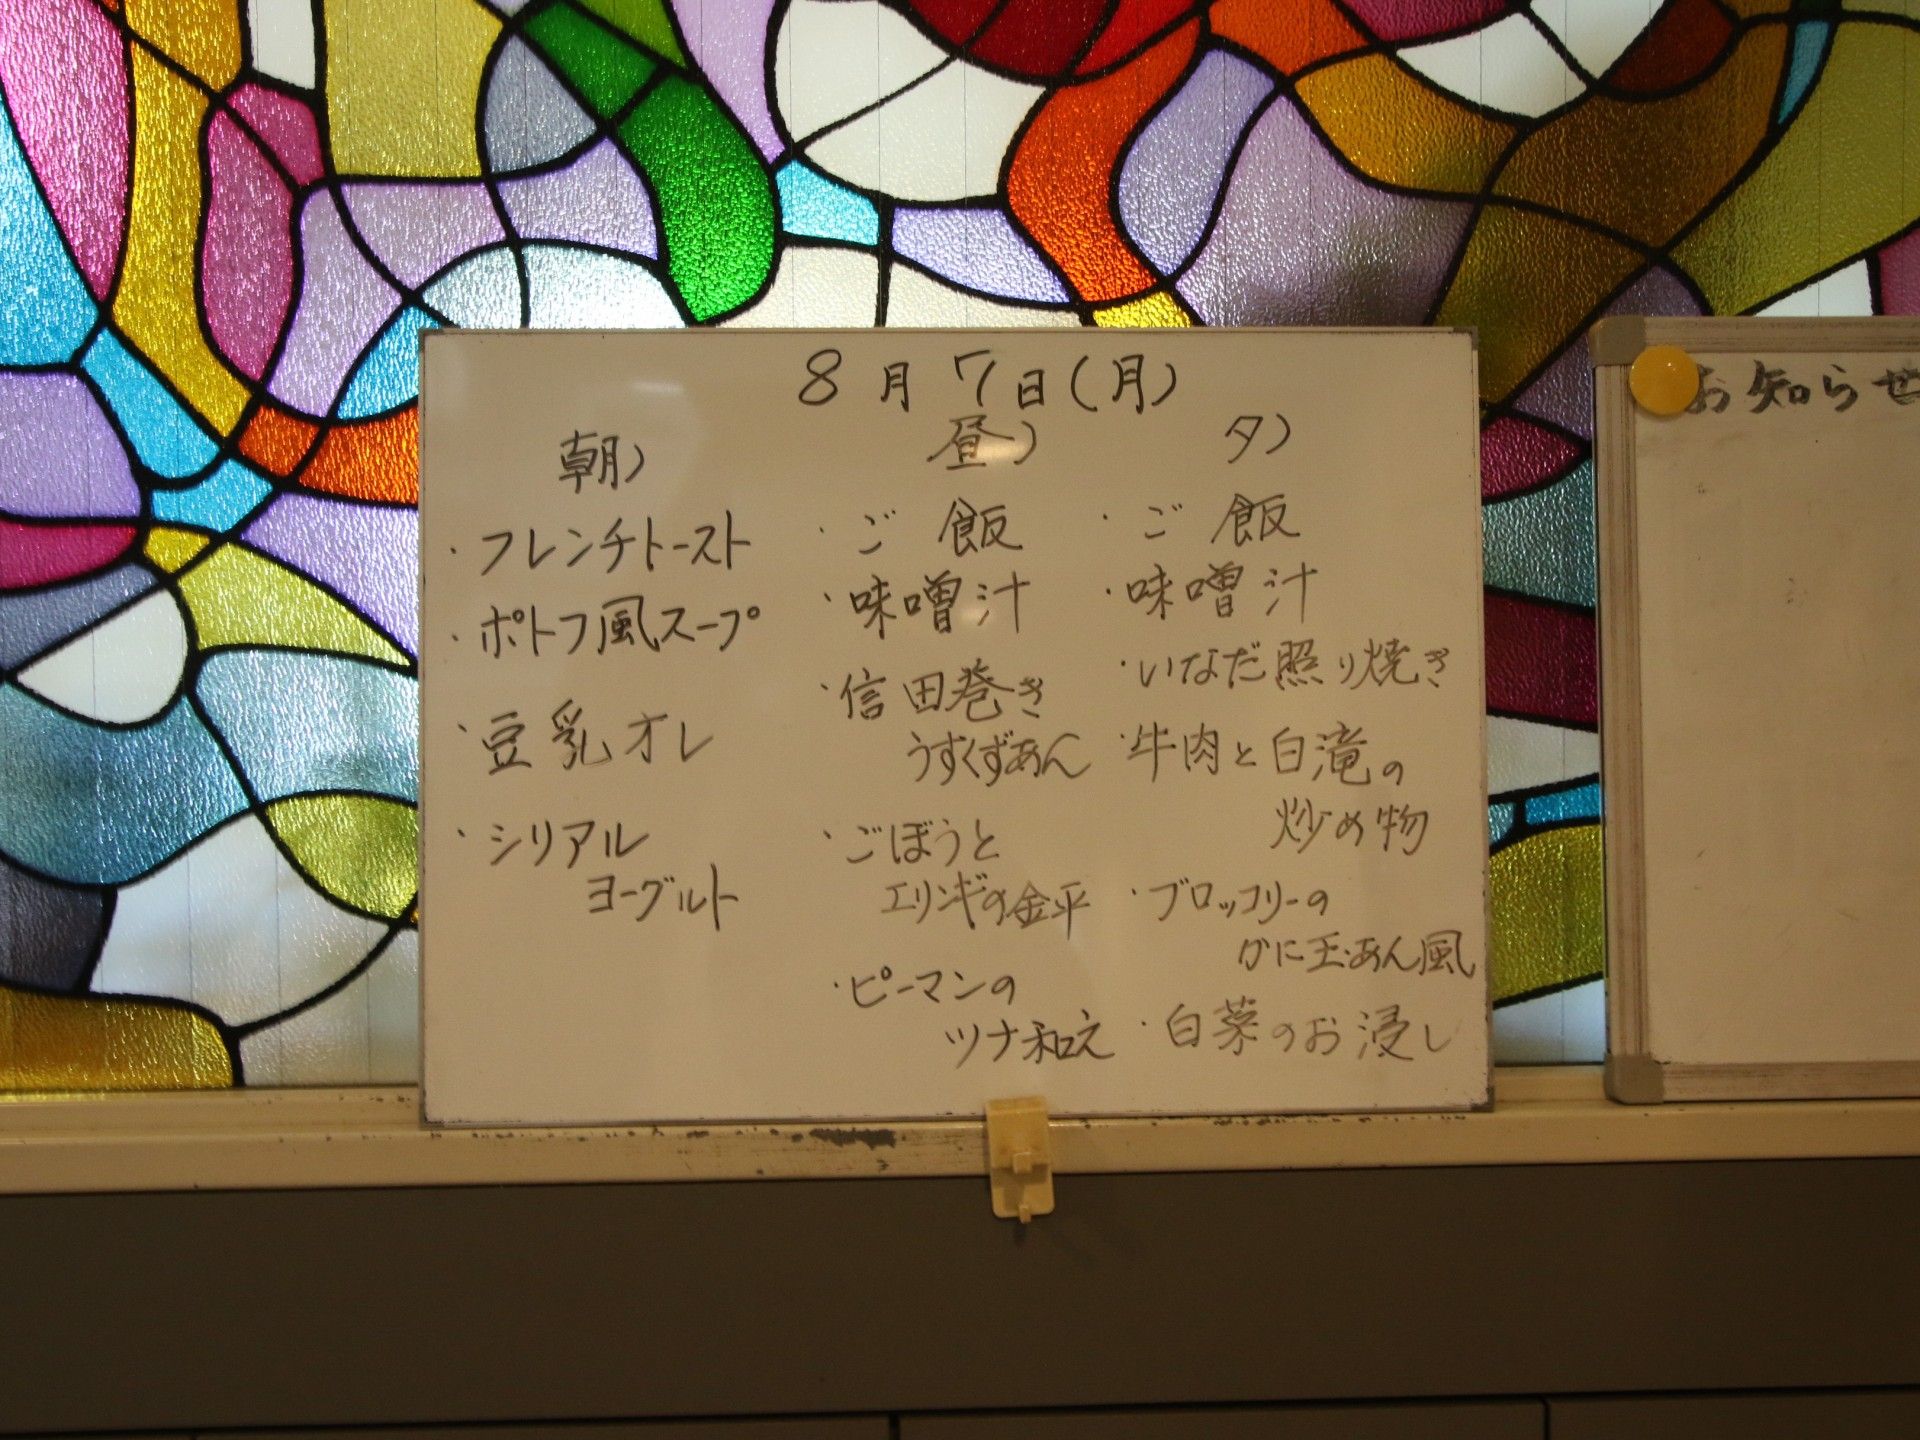 8月7日(月)
朝)
・フレンチトースト
・ポトフ風スープ
・豆乳オレ
・シリアル
ヨーグルト
昼)
・ご飯
・味噌汁
・信田巻き
うすくずあん
・ごぼうと
エリンギの金平
・ピーマンの
ツナ和え
夕)
・ご飯
・味噌汁
・いなだ照り焼き
・牛肉と白滝の
炒め物
・ブロッコリーの
かに玉あん風
・白菜のお浸し
お知らせ